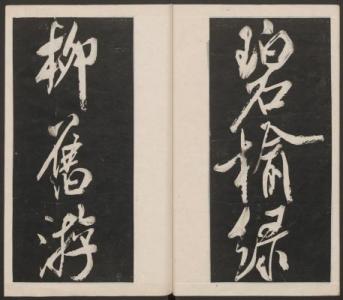 碧榆綠
柳舊游